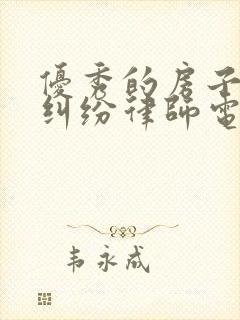 優秀的房子
糾紛律師電
韦永成